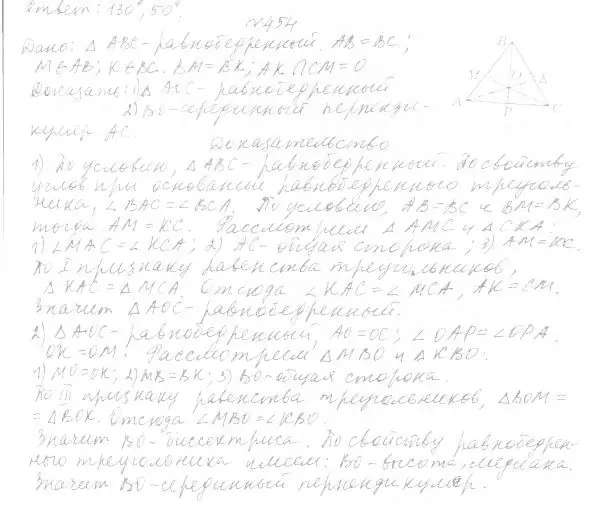 Ответ: 130°, 50°.
№454
Дано: △ ABC - равнобедренный. AB = BC;
M∈AB; K∈BC. BM = BK; AK ∩ CM = O
Доказать: 1) △ AOC - равнобедренный
2) BO - серединный перпенди-
куляр AC.
B
M O K
A P C
Доказательство
1) По условию, △ ABC - равнобедренный. По свойству
углов при основании равнобедренного треуголь-
ника, ∠BAC = ∠BCA. По условию, AB = BC и BM = BK,
тогда AM = KC. Рассмотрим △ AMC и △ CKA:
1) ∠MAC = ∠KCA; 2) AC - общая сторона; 3) AM = KC.
По I признаку равенства треугольников,
△ KAC = △ MCA. Отсюда ∠KAC = ∠MCA, AK = CM.
Значит △ AOC - равнобедренный.
2) △ AOC - равнобедренный, AO = OC; ∠OAP = ∠OPA.
OK = OM. Рассмотрим △ MBO и △ KBO:
1) MO = OK; 2) MB = BK; 3) BO - общая сторона.
По III признаку равенства треугольников, △BOM =
= △BOK. Отсюда ∠MBO = ∠KBO.
Значит BO - биссектриса. По свойству равнобедрен-
ного треугольника имеем: BO - высота, медиана.
Значит BO - серединный перпендикуляр.